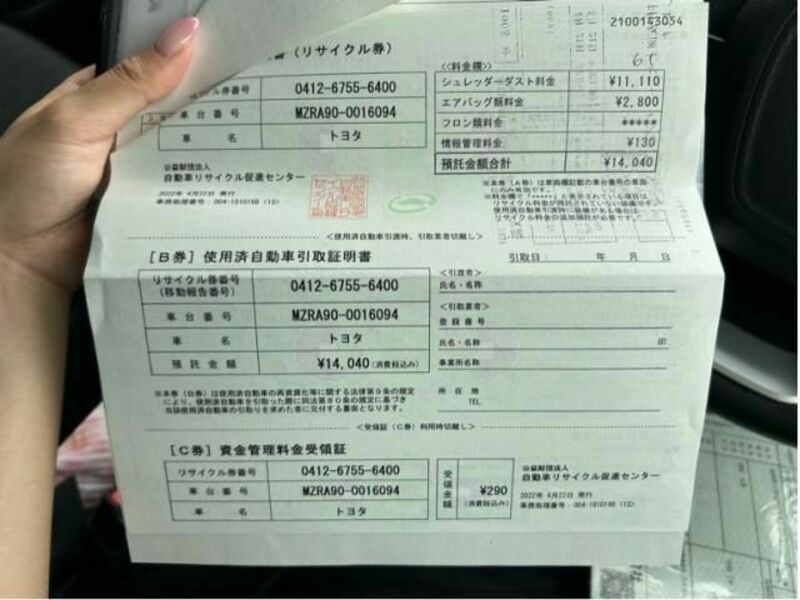 2100143054
（リサイクル券）
券番号 0412-6755-6400
車台番号 MZRA90-0016094
車　　名 トヨタ
公益財団法人
自動車リサイクル促進センター
2022年 4月22日 発行
事務処理番号：004-1810198 (1S)
≪料金欄≫
シュレッダーダスト料金 ¥11,110
エアバッグ類料金 ¥2,800
フロン類料金 *****
情報管理料金 ¥130
預託金額合計 ¥14,040
※本券（A券）は車両欄記載の車台番号の車両
にのみ有効です。
※料金欄で「*****」と表示されている項目は、
リサイクル料金が預託されていない装備です。
使用済自動車引渡時に装備がある場合は、
リサイクル料金の追加預託が必要です。
＜使用済自動車引渡時、引取業者切離し＞
［B券］使用済自動車引取証明書
引取日：　　年　月　日
リサイクル券番号
(移動報告番号) 0412-6755-6400
車台番号 MZRA90-0016094
車　　名 トヨタ
預託金額 ¥14,040 (消費税込み)
＜引渡者＞
氏名・名称
＜引取業者＞
登録番号
氏名・名称 印
事業所名称
所在地
TEL
※本券（B券）は使用済自動車の再資源化等に関する法律第9条の規定
により、使用済自動車を引取った際に同法第80条の規定に基づき
当該使用済自動車の引取りを求めた者に交付する書面となります。
＜受領証（C券）利用時切離し＞
［C券］資金管理料金受領証
リサイクル券番号 0412-6755-6400
車台番号 MZRA90-0016094
車　　名 トヨタ
受領金額 ¥290
(消費税込み)
公益財団法人
自動車リサイクル促進センター
2022年 4月22日 発行
事務処理番号：004-1810198 (1S)